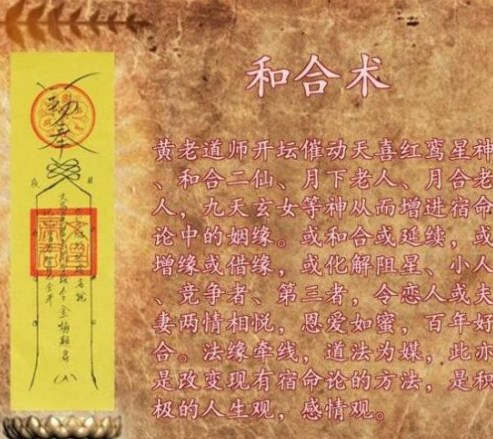 和合术
黄老道师开坛催动天喜红鸾星神
、和合二仙、月下老人、月合老
人，九天玄女等神从而增进宿命
论中的姻缘。或和合或延续，或
增缘或借缘，或化解阻星、小人
、竞争者、第三者，令恋人或夫
妻两情相悦，恩爱如蜜，百年好
合。法缘牵线，道法为媒，此亦
是改变现有宿命论的方法，是积
极的人生观，感情观。